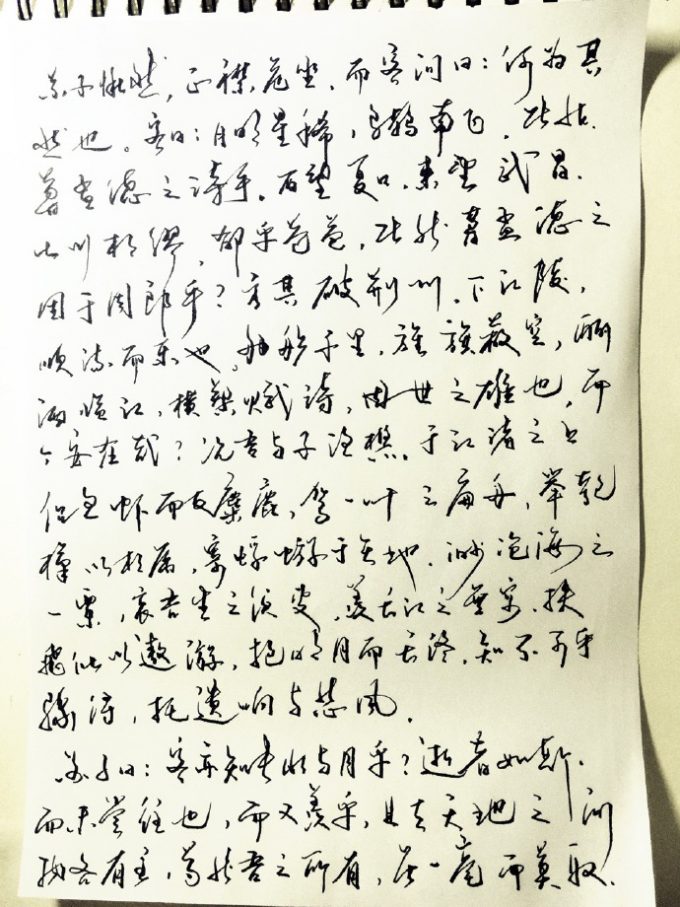 苏子愀然，正襟危坐，而客问曰：何为其
然也。客曰：月明星稀，乌鹊南飞，此非
曹孟德之诗乎。西望夏口，东望武昌，
山川相缪，郁乎苍苍，此非曹孟德之
困于周郎乎？方其破荆州，下江陵，
顺流而东也，舳舻千里，旌旗蔽空，酾
酒临江，横槊赋诗，固世之雄也，而
今安在哉？况吾与子渔樵，于江渚之上
侣鱼虾而友麋鹿，驾一叶之扁舟，举匏
樽以相属，寄蜉蝣于天地，渺沧海之
一粟，哀吾生之须臾，羡长江之无穷，挟
飞仙以遨游，抱明月而长终，知不可乎
骤得，托遗响与悲风。
苏子曰：客亦知夫水与月乎？逝者如斯，
而未尝往也，而又羡乎，且夫天地之间
物各有主，苟非吾之所有，虽一毫而莫取，